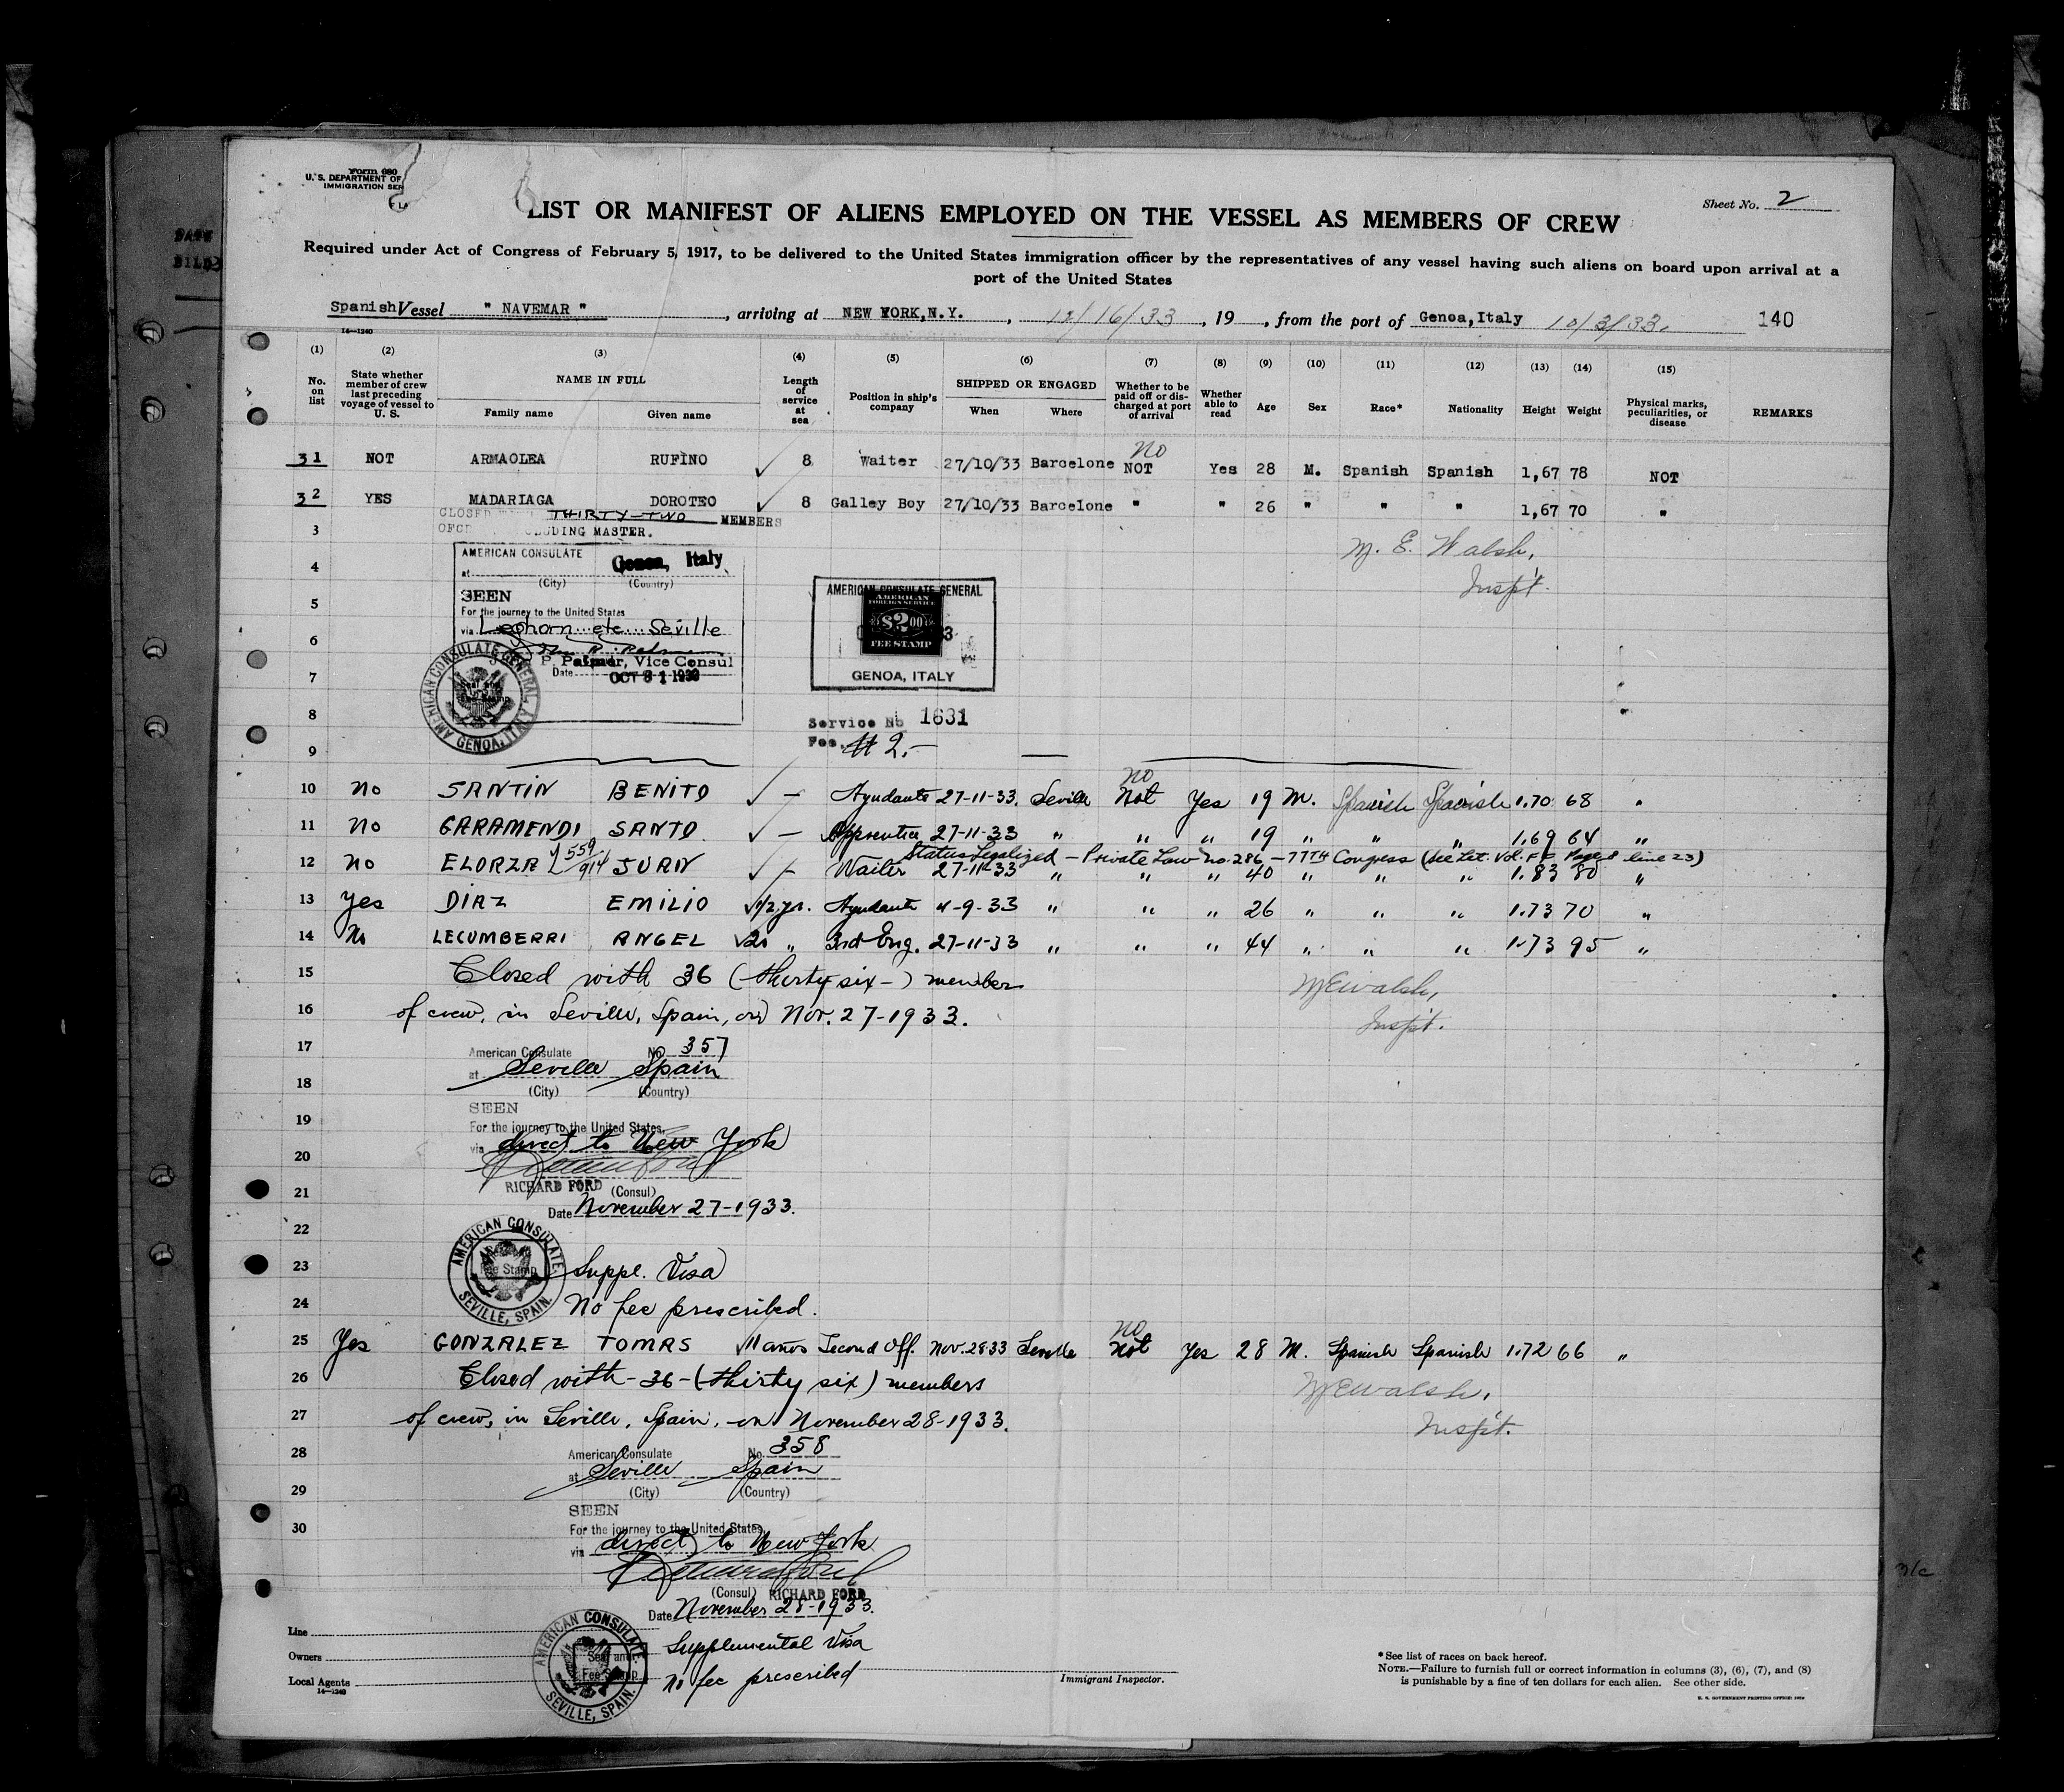 Form 680
U. S. DEPARTMENT OF
IMMIGRATION SER
Sheet No. 2
LIST OR MANIFEST OF ALIENS EMPLOYED ON THE VESSEL AS MEMBERS OF CREW
Required under Act of Congress of February 5, 1917, to be delivered to the United States immigration officer by the representatives of any vessel having such aliens on board upon arrival at a
port of the United States
Spanish Vessel " NAVEMAR ", arriving at NEW YORK, N.Y., 12/16/33, 19, from the port of Genoa, Italy 10/3/33. 140
14—1240
(1) (2) (3) (4) (5) (6) (7) (8) (9) (10) (11) (12) (13) (14) (15)
No. on list
State whether member of crew last preceding voyage of vessel to U. S.
NAME IN FULL
Family name Given name
Length of service at sea
Position in ship's company
SHIPPED OR ENGAGED
When Where
Whether to be paid off or discharged at port of arrival
Whether able to read
Age Sex Race* Nationality Height Weight
Physical marks, peculiarities, or disease
REMARKS
No
31 NOT ARMAOLEA RUFINO ✓ 8 Waiter 27/10/33 Barcelone NOT Yes 28 M. Spanish Spanish 1,67 78 NOT
32 YES MADARIAGA DOROTEO ✓ 8 Galley Boy 27/10/33 Barcelone " " 26 " " " 1,67 70 "
CLOSED THIRTY-TWO MEMBERS
3 UDING MASTER.
M. E. Walsh,
Inspt.
4
5
6
7
8
9
AMERICAN CONSULATE
at Genoa, Italy
(City) (Country)
SEEN
For the journey to the United States
via Leghorn etc Seville
P. Palmer, Vice Consul
Date OCT 31 1933
AMERICAN CONSULATE GENERAL
GENOA, ITALY
AMERICAN CONSULATE GENERAL
AMERICAN
FOREIGN SERVICE
$2.00
FEE STAMP
GENOA, ITALY
Service No 1631
Fee. # 2.-
no
10 No SANTIN BENITO ✓ — Ayudante 27-11-33. Seville Not Yes 19 M. Spanish Spanish 1.70 68 "
11 No GARAMENDI SANTO. ✓ — Apprentice 27-11-33 " " " 19 " " " 1.69 64 "
Status Legalized — Private Law no. 286 — 77TH Congress line 23)
12 No ELORZA 559/914 JUAN ✓ — Waiter 27-11-33 " " " 40 " " " 1.83 80 "
13 Yes DIAZ EMILIO ✓ 1/2 yr. Ayudante 4-9-33 " " " 26 " " " 1.73 70 "
14 No LECUMBERRI ANGEL ✓ 20 " 3rd Eng. 27-11-33 " " " 44 " " " 1.73 95 "
15 Closed with 36 (thirty six-) member
16 of crew, in Seville, Spain, on Nov. 27-1933.
MEWalsh,
Inspt.
17
18
19
20
21
22
23
24
American Consulate No. 357
at Seville Spain
(City) (Country)
SEEN
For the journey to the United States,
via direct to New York
RICHARD FORD (Consul)
Date November 27-1933.
AMERICAN CONSULATE.
Fee Stamp
SEVILLE, SPAIN.
Suppl. Visa
No fee prescribed.
no
25 Yes GONZALEZ TOMAS ✓ 11 años Second Off. Nov. 28-33 Seville Not Yes 28 M. Spanish Spanish 1.72 66 "
26 Closed with -36- (thirty six) members
27 of crew, in Seville, Spain, on November 28-1933.
MEWalsh,
Inspt.
28
29
30
American Consulate No. 358
at Seville Spain
(City) (Country)
SEEN
For the journey to the United States,
via direct to New York
(Consul) RICHARD FORD
Date November 28-1933.
AMERICAN CONSULATE.
Seal and
Fee Stamp
SEVILLE, SPAIN.
Supplemental Visa
No fee prescribed
Line
Owners
Local Agents
14—1240
Immigrant Inspector.
* See list of races on back hereof.
NOTE.—Failure to furnish full or correct information in columns (3), (6), (7), and (8)
is punishable by a fine of ten dollars for each alien. See other side.